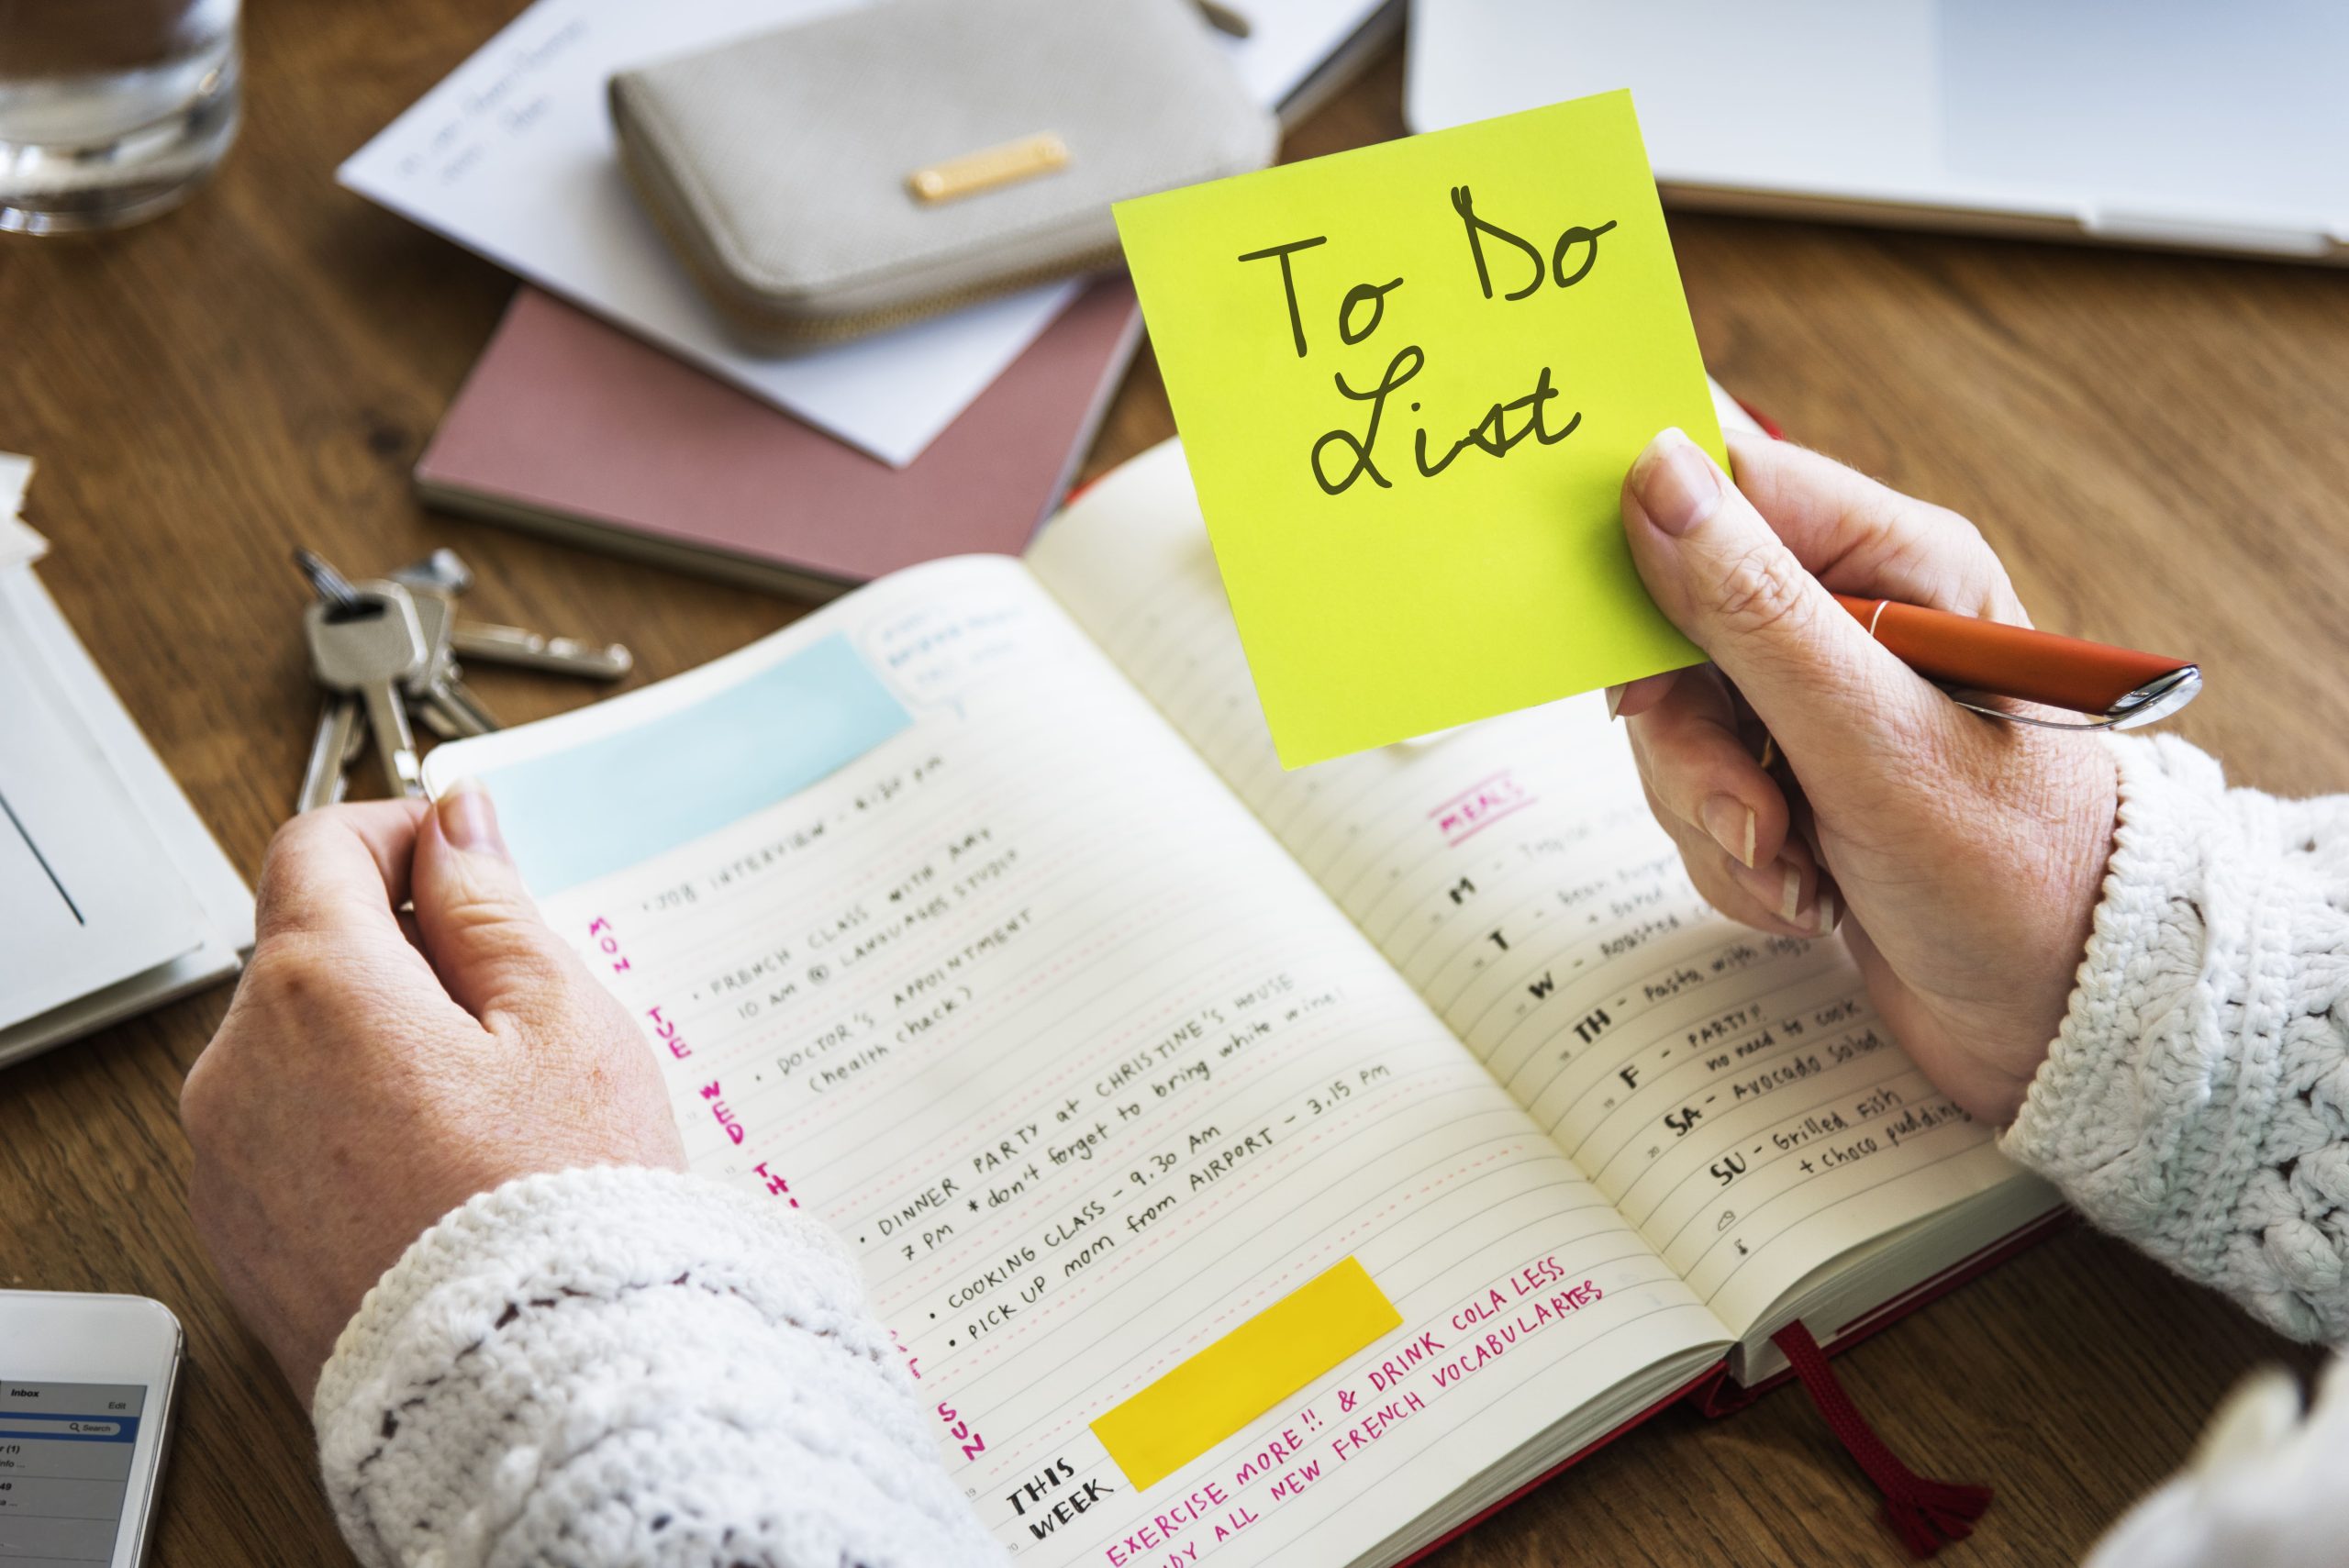 To Do
List
MON
• JOB INTERVIEW -
TUE
• FRENCH CLASS WITH AMY
10 AM @ LANGUAGES STUDIO
WED
• DOCTOR'S APPOINTMENT
(health check)
TH.
• DINNER PARTY at CHRISTINE'S HOUSE
7 PM * don't forget to bring white wine!
• COOKING CLASS - 9.30 AM
• PICK UP mom from AIRPORT - 3.15 PM
SUN
THIS
WEEK
EXERCISE MORE!! & DRINK COLA LESS
ALL NEW FRENCH VOCABULARIES
MEALS
M -
T - bean
+ Baked
W - Roasted
TH - Pasta with vegg
F - PARTY!!
no need to cook
SA - Avocado salad
SU - Grilled Fish
+ choco pudding
Inbox
Edit
Search